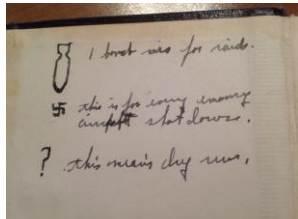 1 bomb for raids.
this is for every enemy
aircraft shot down.
? this means dry run.